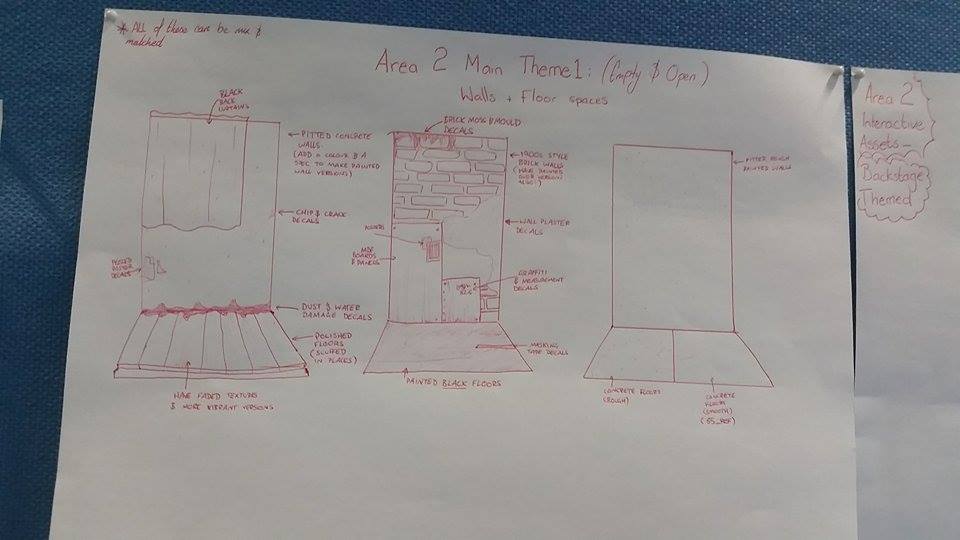 * ALL of these can be mix &
matched
Area 2 Main Theme 1: (Empty & Open)
Walls + Floor spaces
BLACK
BACK
CURTAINS
PITTED CONCRETE
WALLS.
(ADD A COLOUR & A
SPEC TO MAKE PAINTED
WALL VERSIONS)
CHIP & CRACK
DECALS
PEELED
POSTER
DECALS
DUST & WATER
DAMAGE DECALS
POLISHED
FLOORS
(SCUFFED
IN PLACES)
HAVE FADED TEXTURES
& MORE VIBRANT VERSIONS
BRICK MOSS & MOULD
DECALS
1900s STYLE
BRICK WALLS
(HAVE PAINTED
OVER VERSIONS
ALSO)
WALL PLASTER
DECALS
POSTERS
MDF
BOARDS
& PANELS
GRAFFITI
& MEASUREMENT
DECALS
MASKING
TAPE DECALS
PAINTED BLACK FLOORS
PITTED ROUGH
PAINTED WALLS
CONCRETE FLOORS
(ROUGH)
CONCRETE
FLOORS
(SMOOTH)
Area 2
Interactive
Assets -
Backstage
Themed